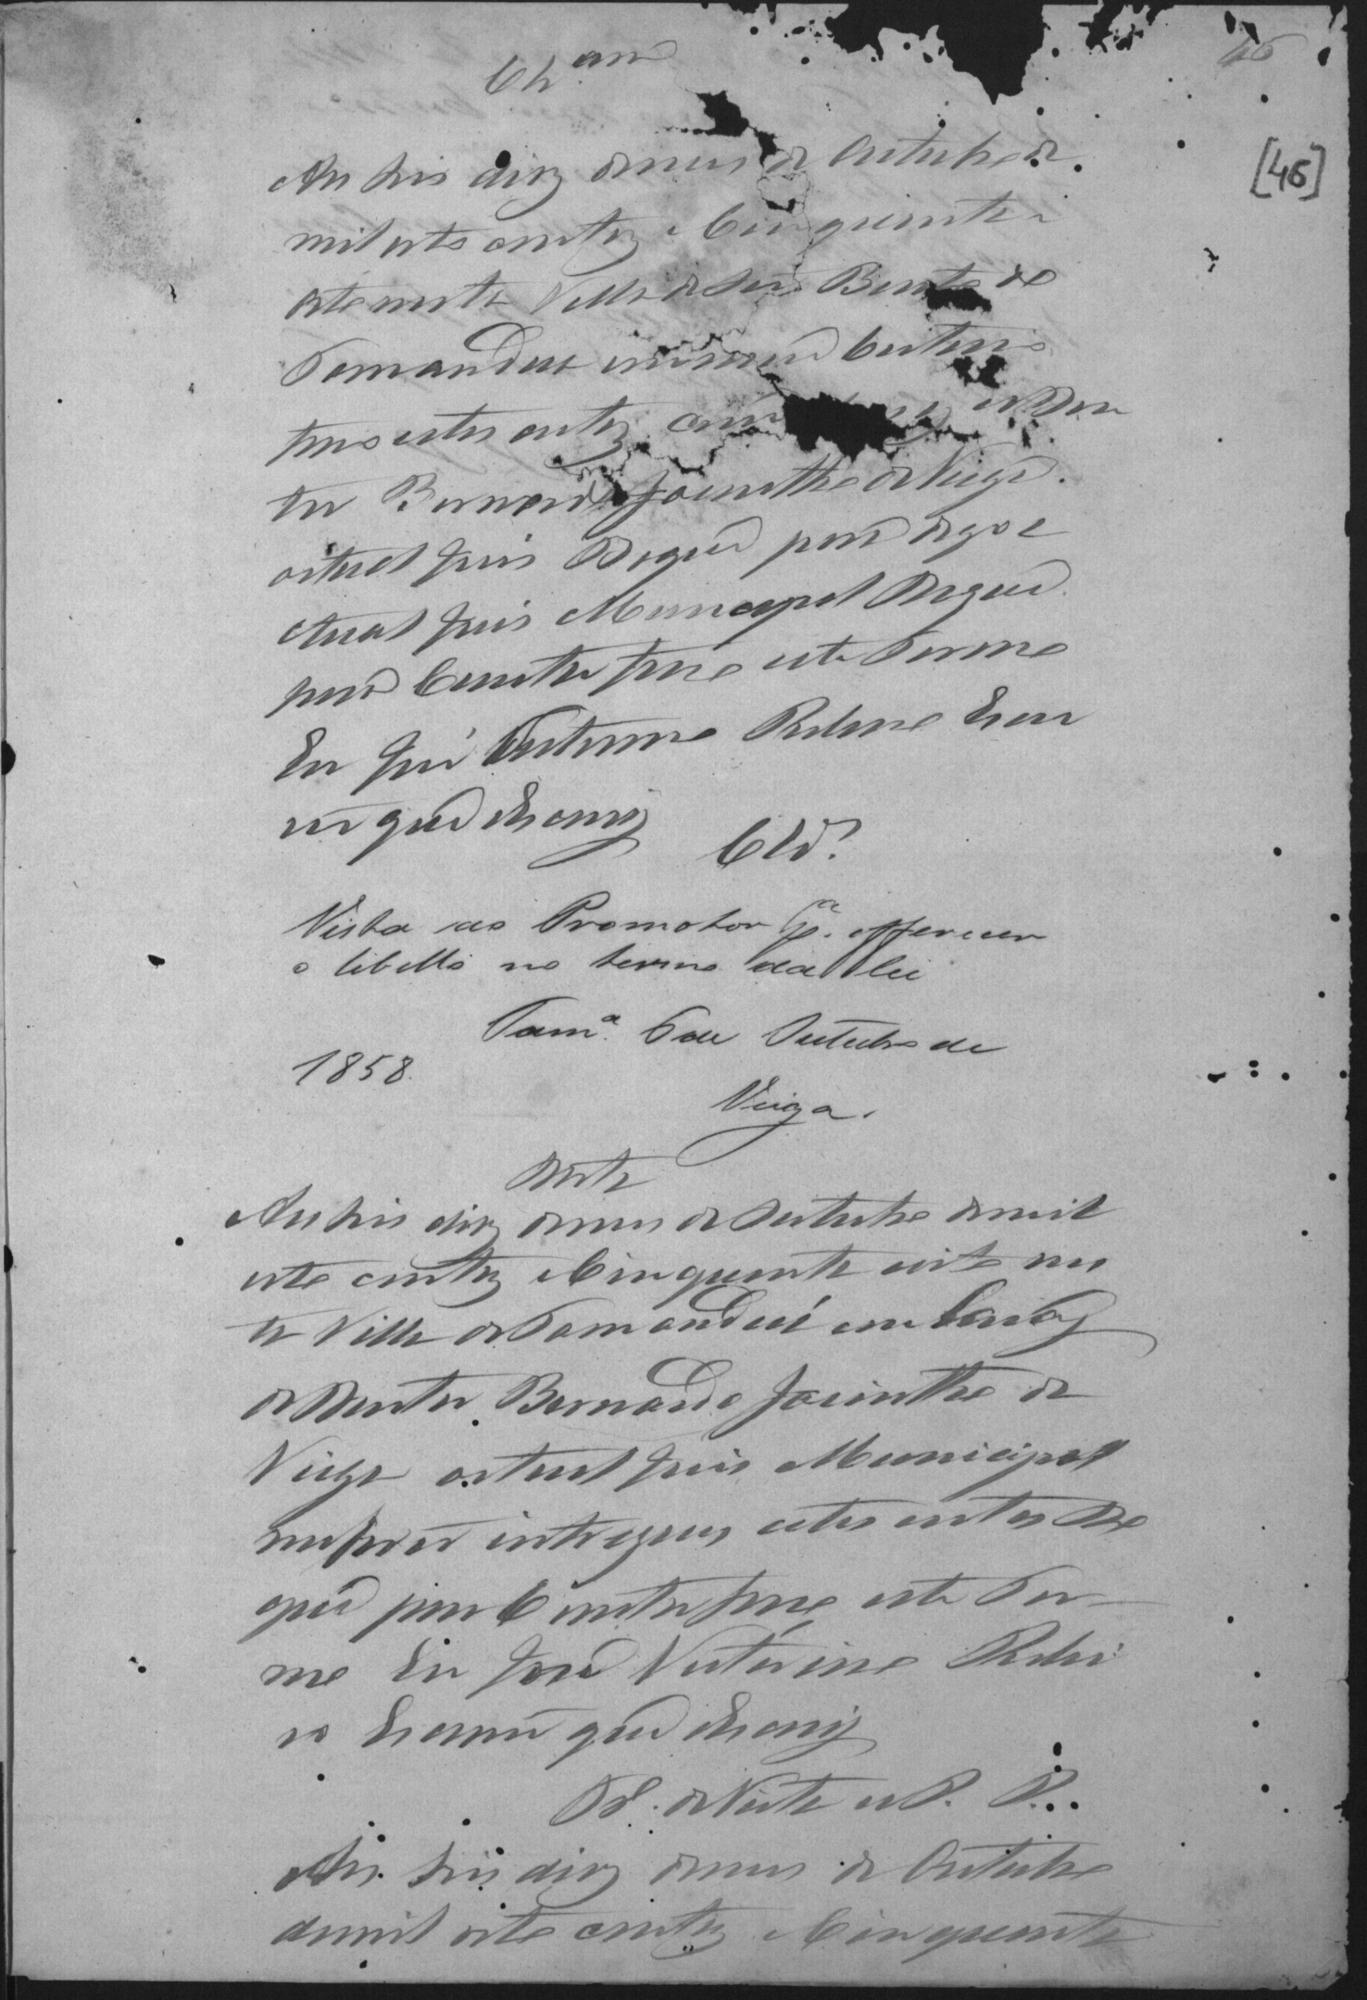 46
[46]
Aos seis dias do mes de Outubro de
mil oito centos e Cincoenta e
oito nesta Villa de São Bento de
Tamanduá em meu Cartorio
faço estes autos ao Dou
tor Bernardo Jacintho da Veiga
actual Juis
actual Juis Municipal
para Constar faço este Termo
Eu José Victorino Ribeiro Escri
vão que o escrevy
Clo.
Vista ao Promotor p.ª offerecer
o libello no termo da lei
Tam.ª 6 de Outubro de
1858.
Veiga.
Data
Aos seis dias do mes de Outubro de mil
oito centos e Cincoenta e oito nes
ta Villa de Tamanduá em Casas
do Doutor Bernardo Jacintho da
Veiga actual Juis Municipal
me forão entregues estes autos de
que para Constar faço este Ter-
mo Eu José Victorino Ribei
ro Escrivão que o escrevy
de Vista ao P. P.
Aos seis dias do mes de Outubro
de mil oito centos e Cincoenta